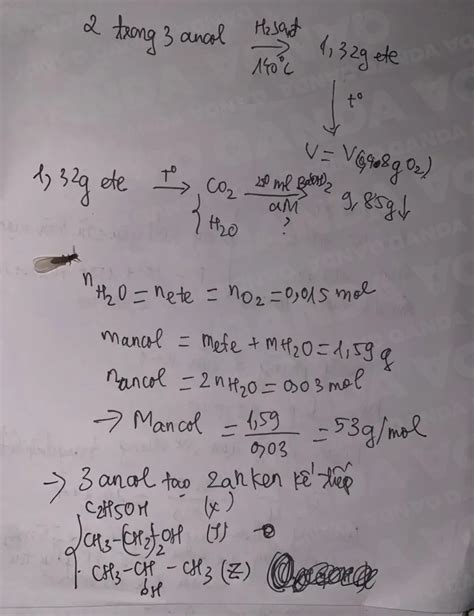 2 trong 3 ancol H2SO4đ 140°C → 1,32g ete
↓ t°
V = V(0,48g O2)
1,32g ete t° → { CO2 H2O 250 ml Ba(OH)2 aM ? → 9,85g↓
nH2O = nete = nO2 = 0,015 mol
mancol = mete + mH2O = 1,59 g
nancol = 2nH2O = 0,03 mol
→ Mancol = 1,59 / 0,03 = 53g/mol
→ 3 ancol tạo 2 anken kế tiếp
C2H5OH (X)
CH3-(CH2)2OH (Y)
CH3-CH-CH3 (Z)
OH